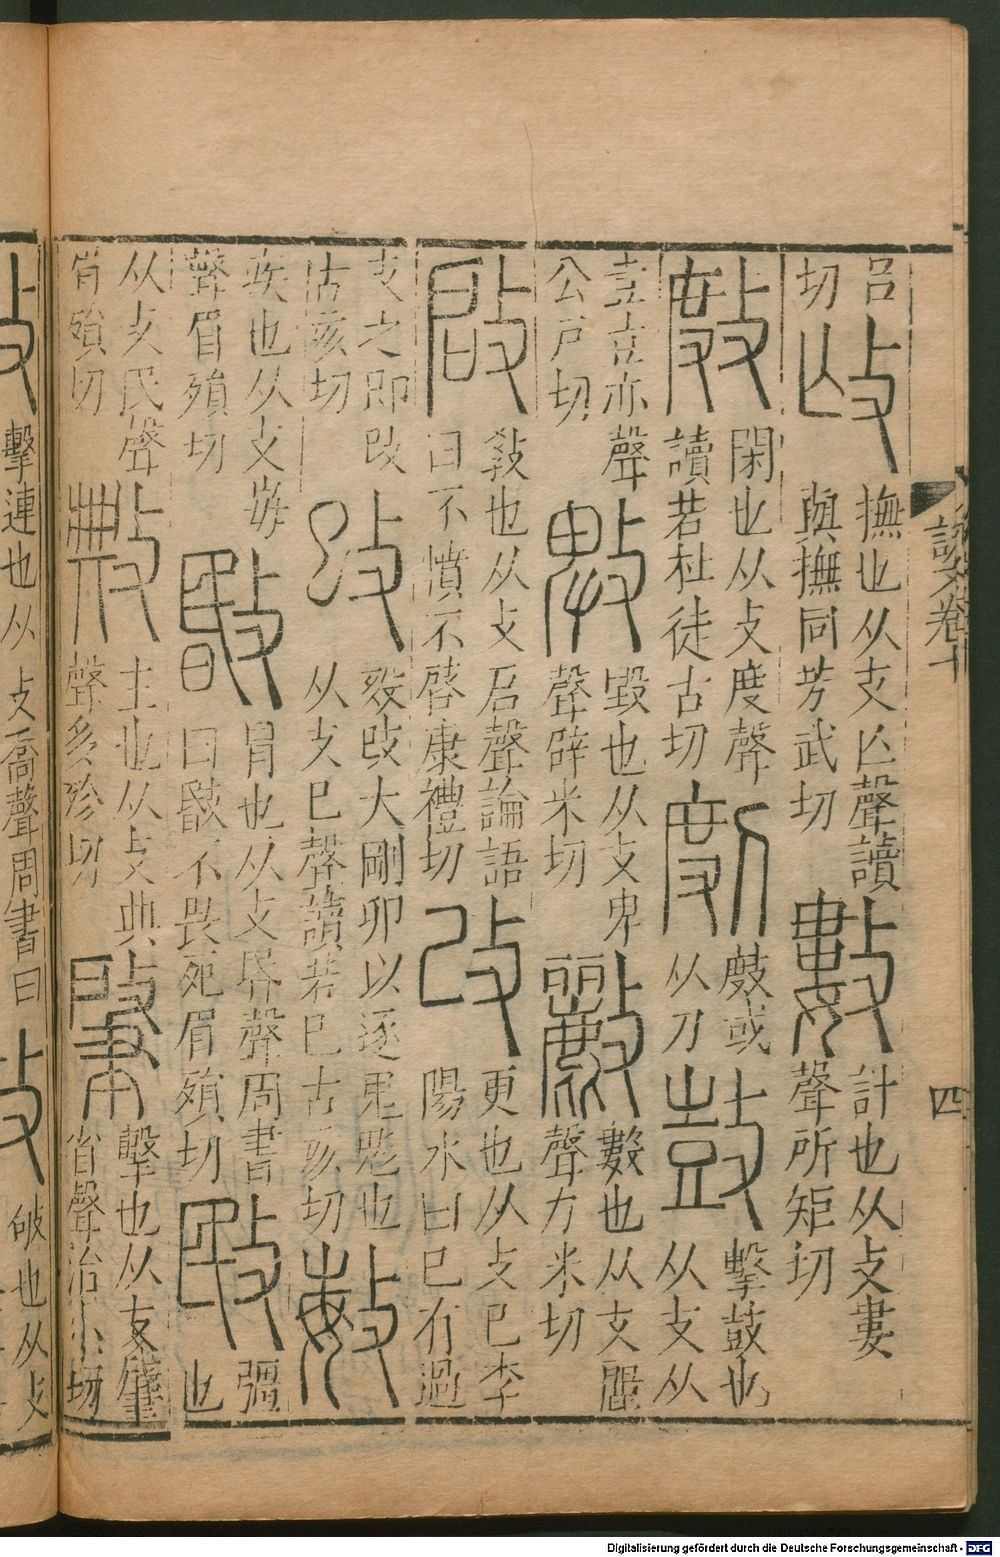 呂切𢻬撫也从攴亾聲讀與撫同芳武切數計也从攴婁聲所矩切
𢾅閑也从攴度聲讀若杜徒古切剫𢾅或从刀鼓擊鼓也从攴从
壴壴亦聲公戸切𢻹毀也从攴卑聲辟米切𢿛數也从攴麗聲力米切
啟敎也从攴启聲論語曰不憤不啓康禮切改更也从攴己李陽冰曰己有過
攴之即改古亥切攺毅攺大剛卯以逐鬼鬽也从攴巳聲讀若巳古亥切敏
疾也从攴每聲眉殞切敯冒也从攴昬聲周書曰敯不畏死眉殞切敃彊也
从攴民聲眉殞切敟主也从攴典聲多殄切肇擊也从攴肈省聲治小切
說文卷十
四
擊連也从攴喬聲周書曰
破也从攴
Digitalisierung gefördert durch die Deutsche Forschungsgemeinschaft - DFG